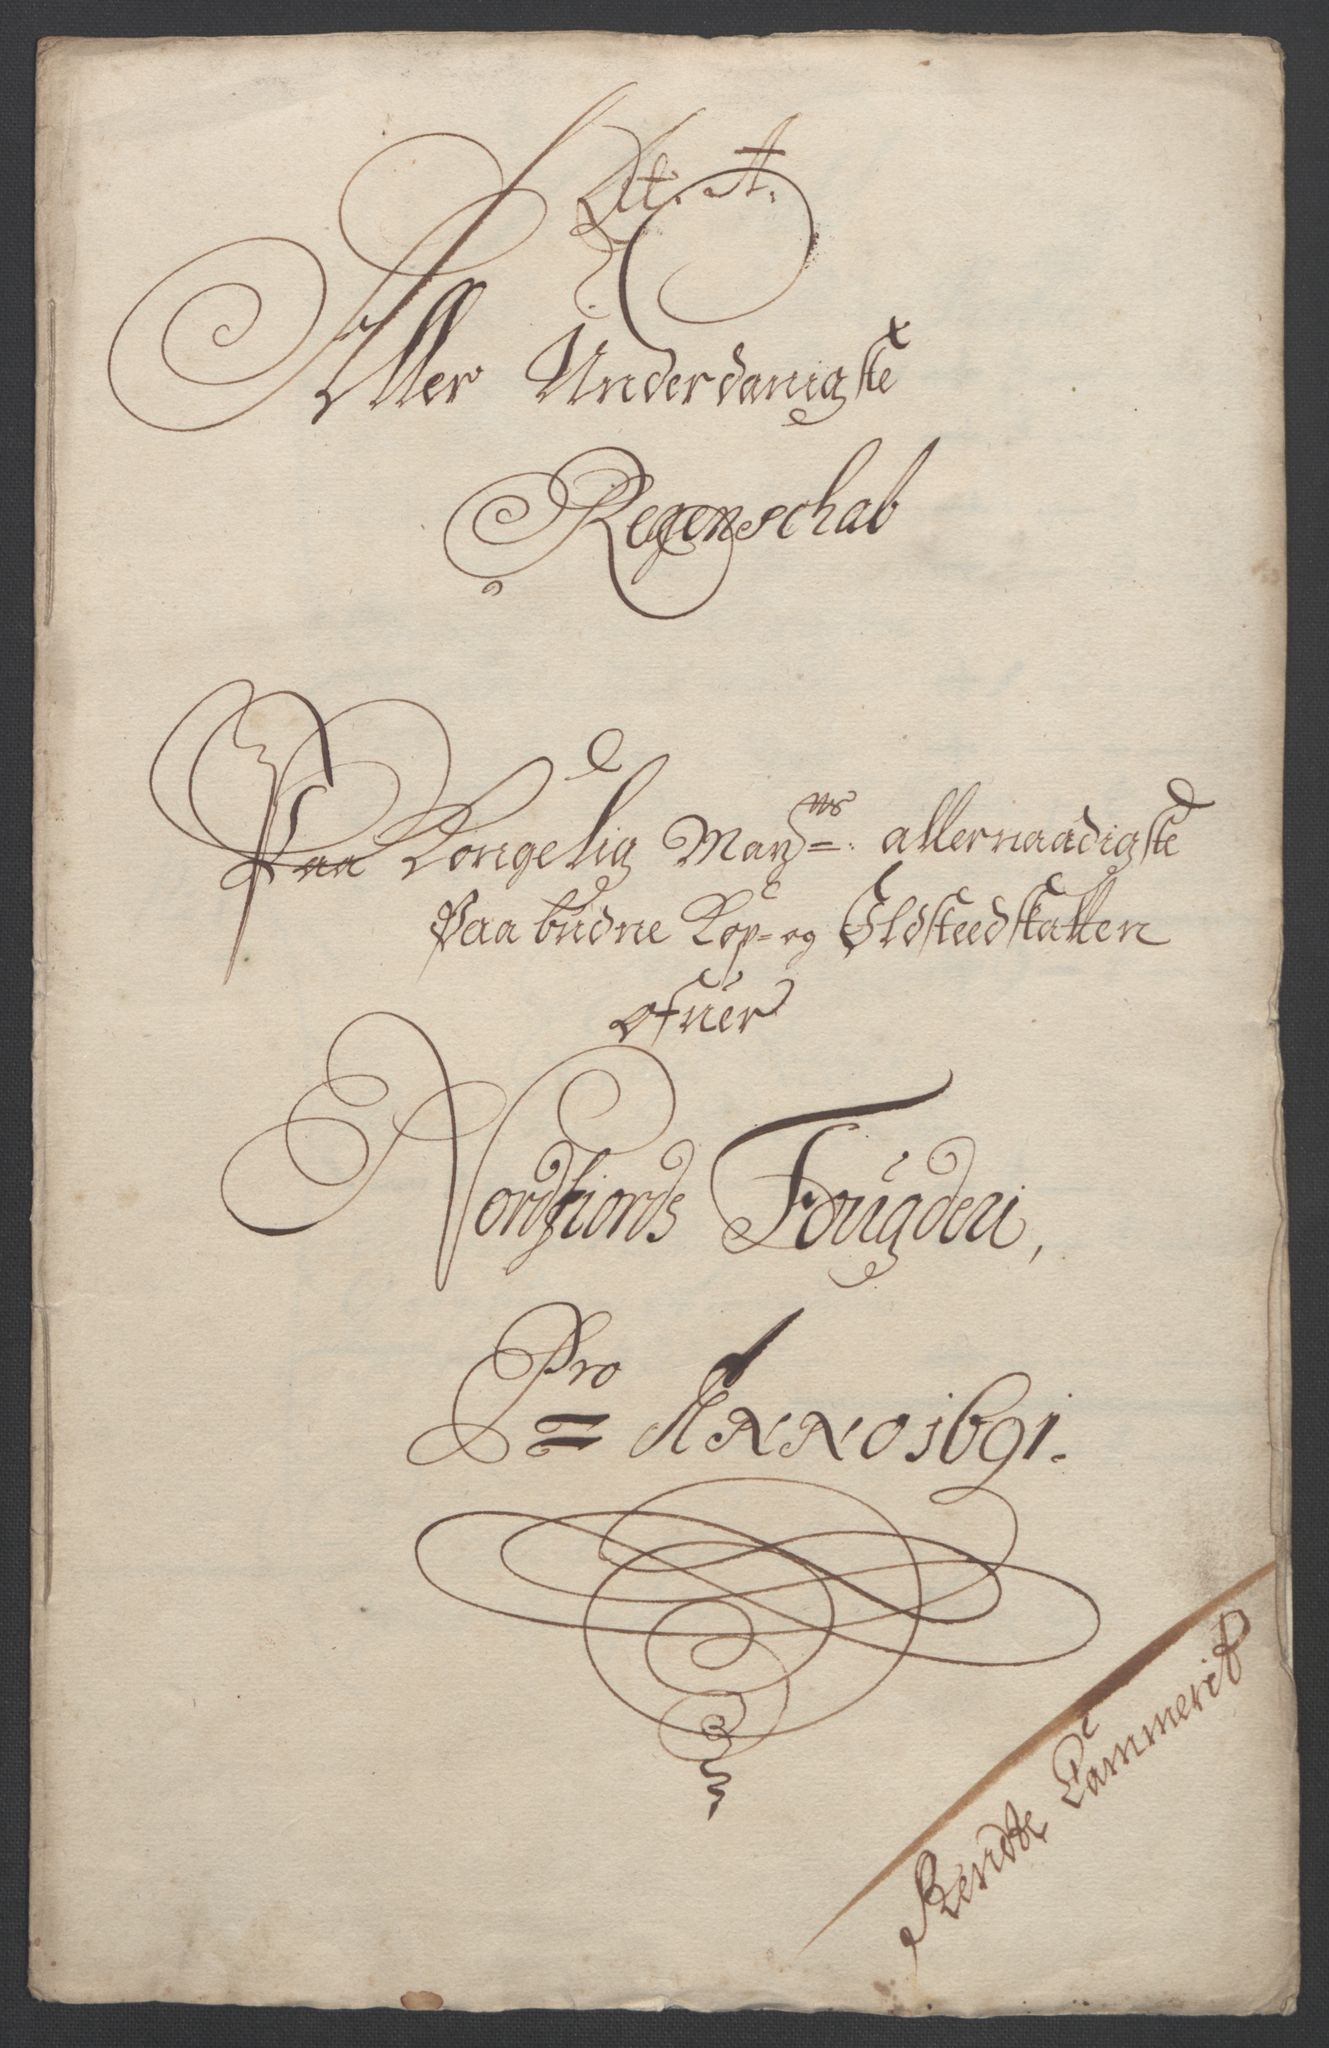 Lit. A.
Aller Underdanigste
Regenschab
Paa Kongelig Mayts. allernaadigste
Paabudne Kop- og Ildsteedskatten
ofuer
Nordfiords Fougderi,
Pro
ANNO 1691.
Rendte Cammerit